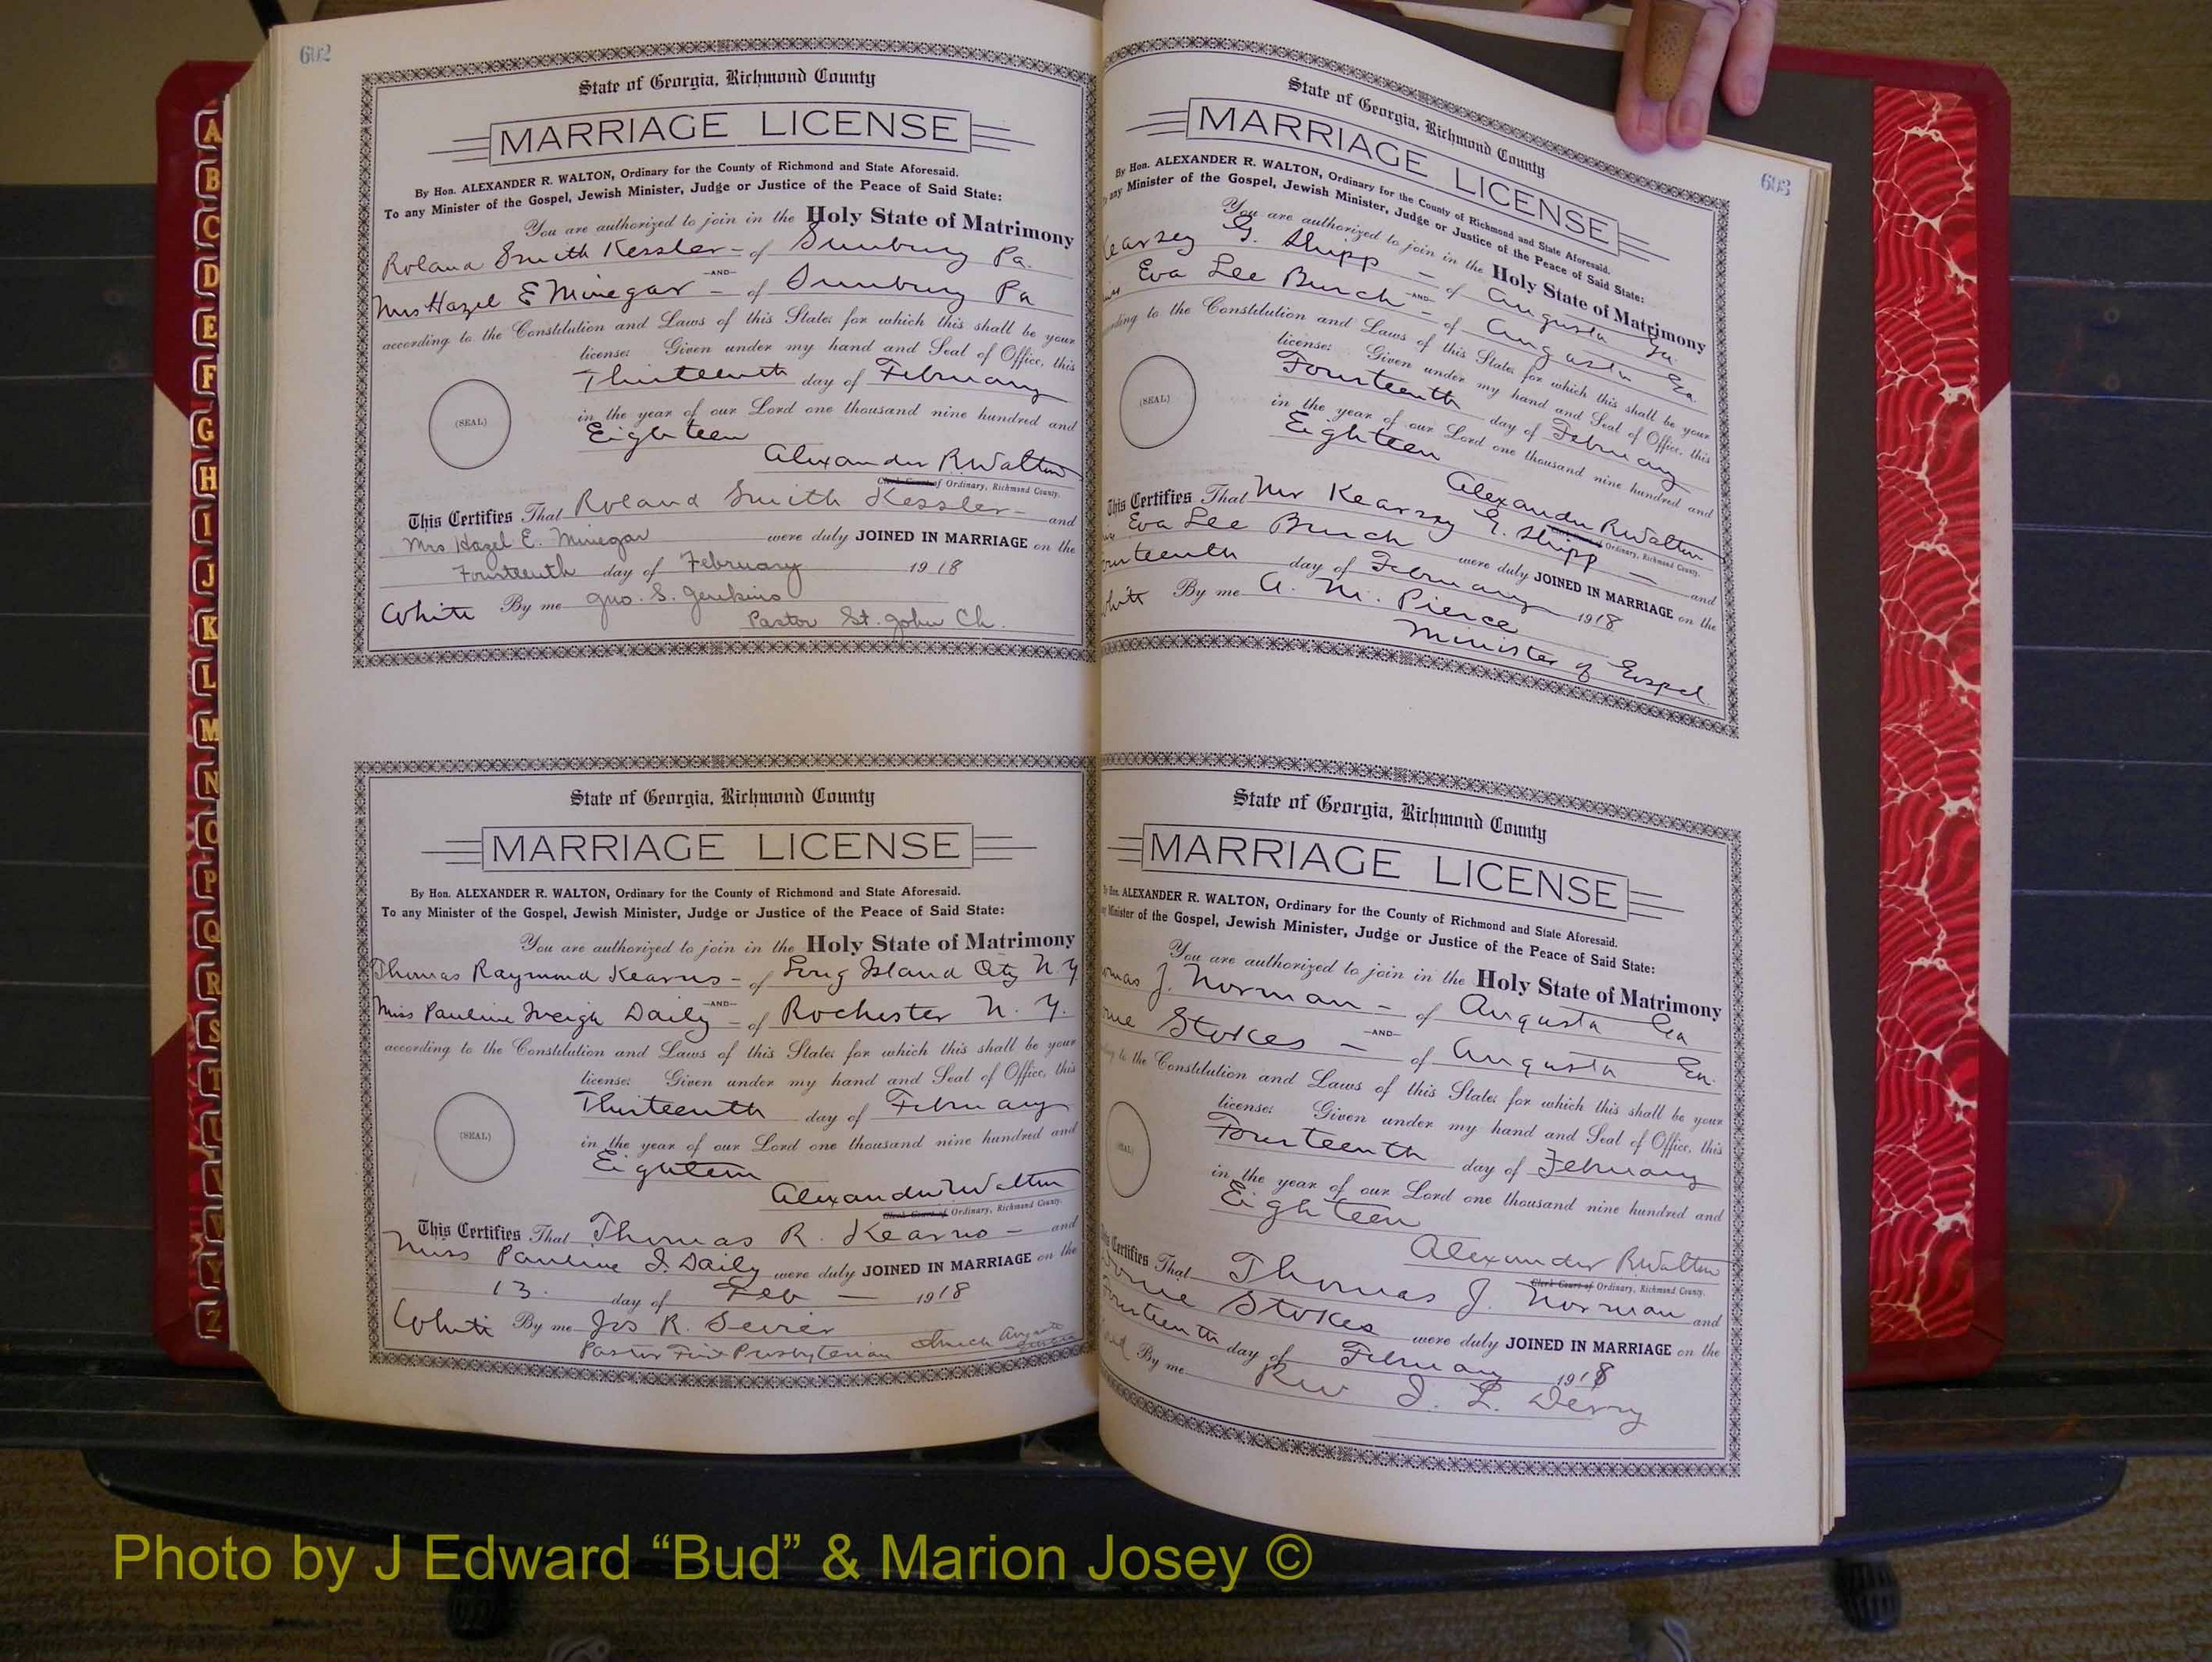 602
State of Georgia, Richmond County
MARRIAGE LICENSE
By Hon. ALEXANDER R. WALTON, Ordinary for the County of Richmond and State Aforesaid.
To any Minister of the Gospel, Jewish Minister, Judge or Justice of the Peace of Said State:
You are authorized to join in the Holy State of Matrimony
Roland Smith Kessler - of Sunbury Pa.
-AND-
Mrs Hazel E Minegar - of Sunbury Pa
according to the Constitution and Laws of this State; for which this shall be your
license; Given under my hand and Seal of Office, this
Thirteenth day of February
in the year of our Lord one thousand nine hundred and
(SEAL)
Eighteen
Alexander R. Walton
Clerk Court of Ordinary, Richmond County.
This Certifies That Roland Smith Kessler - and
Mrs Hazel E. Minegar were duly JOINED IN MARRIAGE on the
Fourteenth day of February 1918
White By me Geo. S. Jenkins
Pastor St. John Ch.
State of Georgia, Richmond County
MARRIAGE LICENSE
By Hon. ALEXANDER R. WALTON, Ordinary for the County of Richmond and State Aforesaid.
To any Minister of the Gospel, Jewish Minister, Judge or Justice of the Peace of Said State:
You are authorized to join in the Holy State of Matrimony
Thomas Raymond Kearns - of Long Island City N Y
-AND-
Miss Pauline Daily - of Rochester N. Y.
according to the Constitution and Laws of this State; for which this shall be your
license; Given under my hand and Seal of Office, this
Thirteenth day of February
(SEAL)
in the year of our Lord one thousand nine hundred and
Eighteen
Alexander R Walton
Clerk Court of Ordinary, Richmond County.
This Certifies That Thomas R. Kearns - and
Miss Pauline I. Daily were duly JOINED IN MARRIAGE on the
13. day of Feb - 1918
White By me Jos R. Sevier
Pastor First Presbyterian Church Augusta Georgia
603
State of Georgia, Richmond County
MARRIAGE LICENSE
By Hon. ALEXANDER R. WALTON, Ordinary for the County of Richmond and State Aforesaid.
any Minister of the Gospel, Jewish Minister, Judge or Justice of the Peace of Said State:
You are authorized to join in the Holy State of Matrimony
Kearsey G. Shipp - of Augusta Ga.
-AND-
Eva Lee Burch - of Augusta Ga.
to the Constitution and Laws of this State; for which this shall be your
license; Given under my hand and Seal of Office, this
Fourteenth day of February
(SEAL)
in the year of our Lord one thousand nine hundred and
Eighteen
Alexander R Walton
Clerk Court of Ordinary, Richmond County.
This Certifies That Mr Kearsey G. Shipp - and
Eva Lee Burch were duly JOINED IN MARRIAGE on the
day of February 1918
White By me A. M. Pierce
Minister of Gospel
State of Georgia, Richmond County
MARRIAGE LICENSE
By Hon. ALEXANDER R. WALTON, Ordinary for the County of Richmond and State Aforesaid.
Minister of the Gospel, Jewish Minister, Judge or Justice of the Peace of Said State:
You are authorized to join in the Holy State of Matrimony
J. Norman - of Augusta Ga
-AND-
Stokes - of Augusta Ga.
to the Constitution and Laws of this State; for which this shall be your
license; Given under my hand and Seal of Office, this
Fourteenth day of February
(SEAL)
in the year of our Lord one thousand nine hundred and
Eighteen
Alexander R. Walton
Clerk Court of Ordinary, Richmond County.
Certifies That Thomas J. Norman and
Stokes were duly JOINED IN MARRIAGE on the
Fourteenth day of February 1918
By me Rev J. L. Derry
A
B
C
D
E
F
G
H
I
J
K
L
M
N
O
P
Q
R
S
T
U
V
W
Y
Z
Photo by J Edward “Bud” & Marion Josey ©